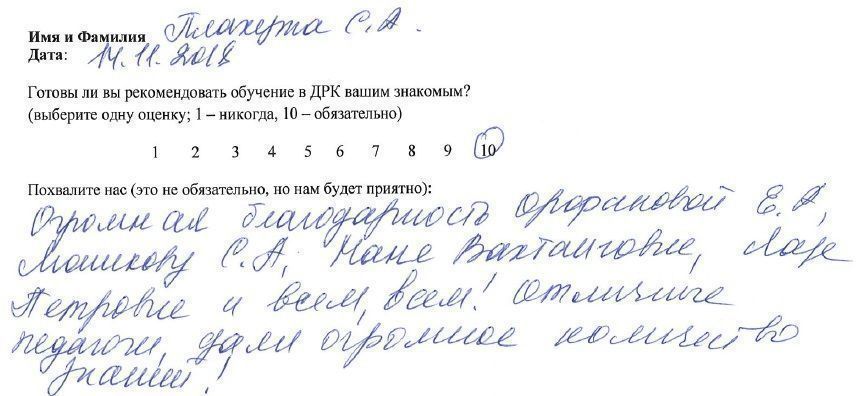 Имя и Фамилия Плахута С.А.
Дата: 14.11.2018
Готовы ли вы рекомендовать обучение в ДРК вашим знакомым?
(выберите одну оценку; 1 – никогда, 10 – обязательно)
1 2 3 4 5 6 7 8 9 10
Похвалите нас (это не обязательно, но нам будет приятно):
Огромная благодарность Орфановой Е.А,
Машкову С.А, Нане Вахтанговне, Ларе
Петровне и всем, всем! Отличные
педагоги, дали огромное количество
знаний!